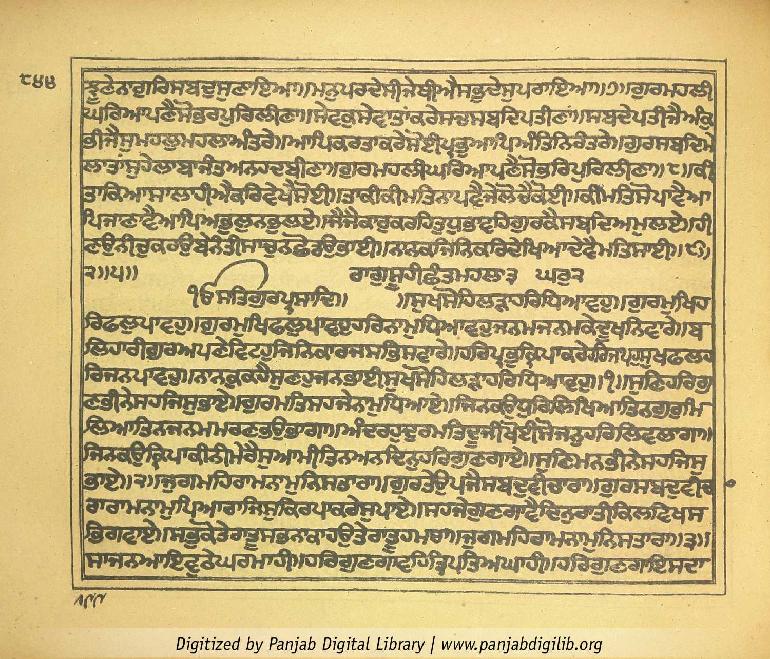 ੮੪੪
ਝੂਣੇਨਗੁਰਿਸਬਦੁਸੁਣਾਇਆ॥ਮਨੁਪਰਦੇਸੀਜੇਥੀਐਸਭੁਦੇਸੁਪਰਾਇਆ॥੭॥ਗੁਰਮਹਲੀ
ਘਰਿਆਪਣੈਸੋਭਰਪੁਰਿਲੀਣਾ॥ਸੇਵਕੁਸੇਵਾਤਾਂਕਰੇਸਚਸਬਦਿਪਤੀਣਾ॥ਸਬਦੇਪਤੀਜੈਅੰਕੁ
ਭੀਜੈਸੁਮਹਲੁਮਹਲਾਅੰਤਰੇ॥ਆਪਿਕਰਤਾਕਰੇਸੋਈਪ੍ਰਭੁਆਪਿਅੰਤਿਨਿਰੰਤਰੇ॥ਗੁਰਸਬਦਿਮੇ
ਲਾਤਾਂਸੁਹੇਲਾਬਾਜੰਤਅਨਹਦਬੀਣਾ॥ਗੁਰਮਹਲੀਘਰਿਆਪਣੈਸੋਭਰਿਪੁਰਿਲੀਣਾ॥੮॥ਕੀ
ਤਾਕਿਆਸਾਲਾਹੀਐਕਰਿਵੇਖੈਸੋਈ॥ਤਾਕੀਕੀਮਤਿਨਾਪਵੈਜੇਲੋਚੈਕੋਈ॥ਕੀਮਤਿਸੋਪਾਵੈਆ
ਪਿਜਾਣਾਵੈਆਪਿਅਭੁਲੁਨਭੁਲਏ॥ਜੈਜੈਕਾਰੁਕਰਹਿਤੁਧੁਭਾਵਹਿਗੁਰਕੈਸਬਦਿਅਮੁਲਏ॥ਹੀ
ਣਉਨੀਚੁਕਰਉਬੇਨੰਤੀਸਾਚੁਨਛੋਡਉਭਾਈ॥ਨਾਨਕਜਿਨਿਕਰਿਦੇਖਿਆਦੇਵੈਮਤਿਸਾਈ॥੯॥
੨॥੫॥ ਰਾਗੁਸੂਹੀਛੰਤਮਹਲਾ੩ ਘਰੁ੨
ੴਸਤਿਗੁਰਪ੍ਰਸਾਦਿ॥ ॥ਸੁਖਸੋਹਿਲੜਾਹਰਿਧਿਆਵਹੁ॥ਗੁਰਮੁਖਿਹ
ਰਿਫਲੁਪਾਵਹੁ॥ਗੁਰਮੁਖਿਫਲੁਪਾਵਹੁਹਰਿਨਾਮੁਧਿਆਵਹੁਜਨਮਜਨਮਕੇਦੂਖਨਿਵਾਰੇ॥ਬ
ਲਿਹਾਰੀਗੁਰਅਪਣੇਵਿਟਹੁਜਿਨਿਕਾਰਜਸਭਿਸਵਾਰੇ॥ਹਰਿਪ੍ਰਭੁਕ੍ਰਿਪਾਕਰੇਹਰਿਜਾਪਹੁਸੁਖਫਲਹ
ਰਿਜਨਪਾਵਹੁ॥ਨਾਨਕੁਕਹੈਸੁਣਹੁਜਨਭਾਈਸੁਖਸੋਹਿਲੜਾਹਰਿਧਿਆਵਹੁ॥੧॥ਸੁਣਿਹਰਿਗੁ
ਣਭੀਨੇਸਹਜਿਸੁਭਾਏ॥ਗੁਰਮਤਿਸਹਜੇਨਾਮੁਧਿਆਏ॥ਜਿਨਕਉਧੁਰਿਲਿਖਿਆਤਿਨਗੁਰੁਮਿ
ਲਿਆਤਿਨਜਨਮਮਰਣਭਉਭਾਗਾ॥ਅੰਦਰਹੁਦੁਰਮਤਿਦੂਜੀਖੋਈਸੋਜਨੁਹਰਿਲਿਵਲਾਗਾ॥
ਜਿਨਕਉਕ੍ਰਿਪਾਕੀਨੀਮੇਰੈਸੁਆਮੀਤਿਨਅਨਦਿਨੁਹਰਿਗੁਣਗਾਏ॥ਸੁਣਿਮਨਭੀਨੇਸਹਜਿਸੁ
ਭਾਏ॥੨॥ਜੁਗਮਹਿਰਾਮਨਾਮੁਨਿਸਤਾਰਾ॥ਗੁਰਤੇਉਪਜੈਸਬਦੁਵੀਚਾਰਾ॥ਗੁਰਸਬਦੁਵੀਚਾ
ਰਾਰਾਮਨਾਮੁਪਿਆਰਾਜਿਸੁਕਿਰਪਾਕਰੇਸੁਪਾਏ॥ਸਹਜੇਗੁਣਗਾਵੈਦਿਨੁਰਾਤੀਕਿਲਵਿਖਸ
ਭਿਗਵਾਏ॥ਸਭੁਕੋਤੇਰਾਤੂਸਭਨਾਕਾਹਉਤੇਰਾਤੂਹਮਾਰਾ॥ਜੁਗਮਹਿਰਾਮਨਾਮੁਨਿਸਤਾਰਾ॥੩॥
ਸਾਜਨਆਇਵੁਠੇਘਰਮਾਹੀ॥ਹਰਿਗੁਣਗਾਵਹਿਤ੍ਰਿਪਤਿਅਘਾਹੀ॥ਹਰਿਗੁਣਗਾਇਸਦਾ
Digitized by Panjab Digital Library | www.panjabdigilib.org